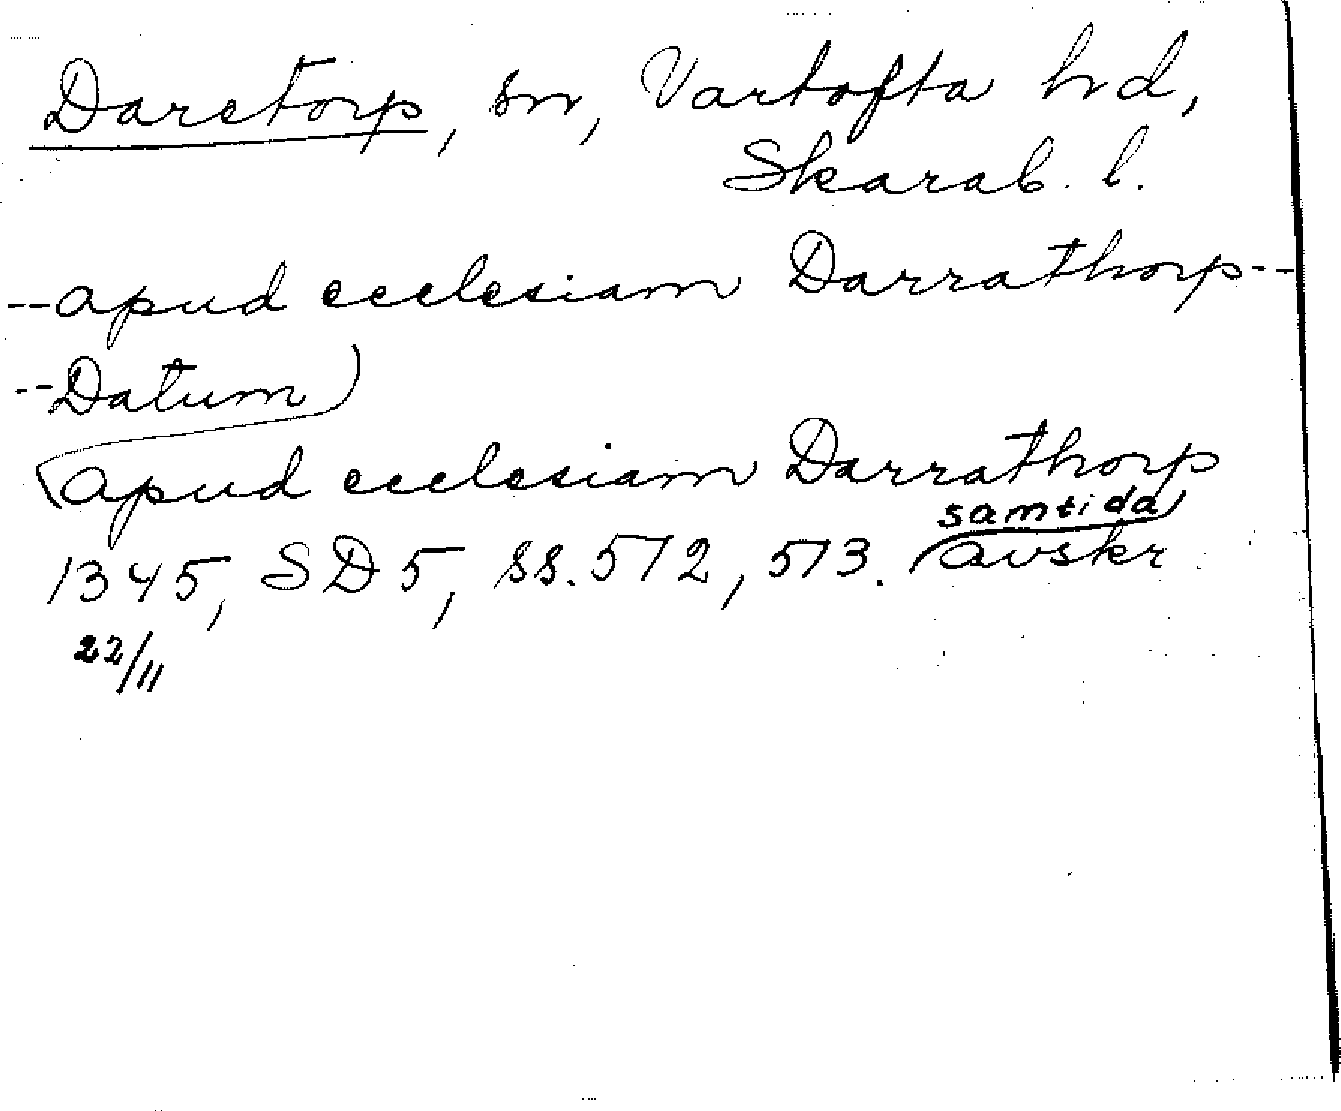 Daretorp, sn, Vartofta hd,
Skarab. l.
--apud ecclesiam Darrathorp--
--Datum
apud ecclesiam Darrathorp
samtida
1345, SD 5, ss. 512, 513. avskr
22/11